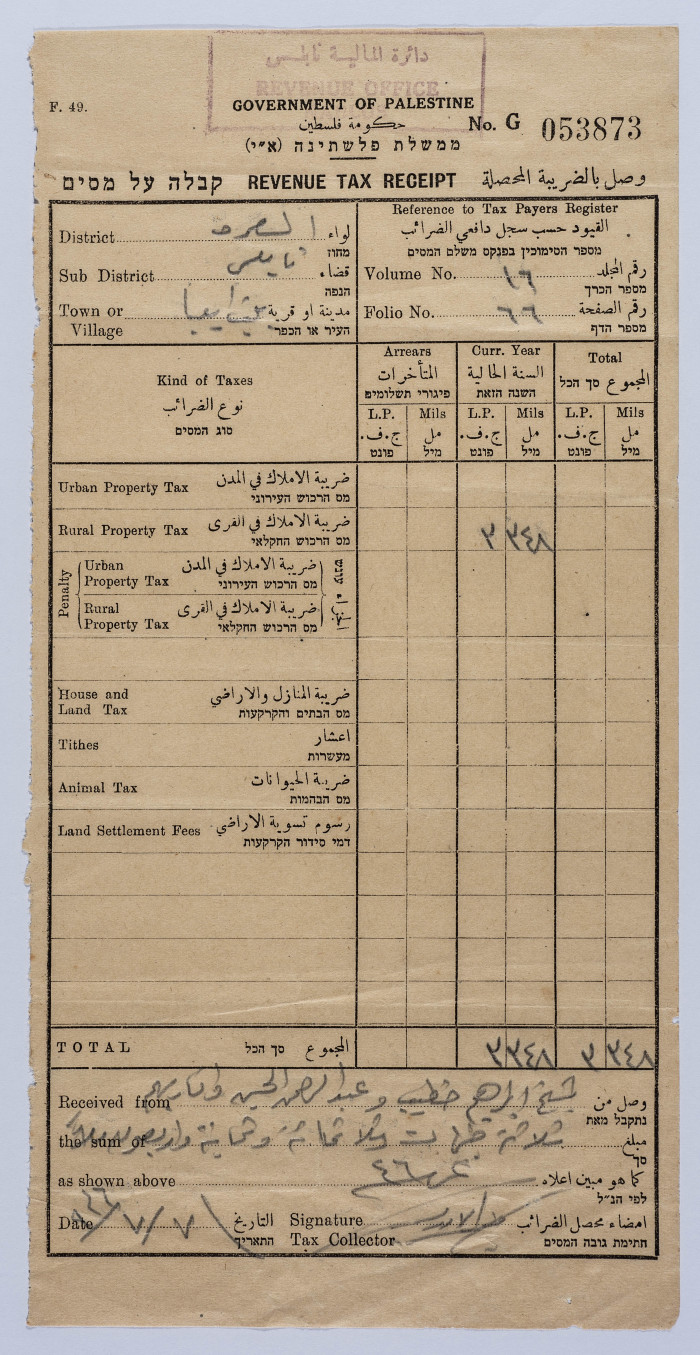 دائرة المالية نابلس
REVENUE OFFICE
F. 49.
GOVERNMENT OF PALESTINE
حكومة فلسطين
No. G 053873
ממשלת פלשתינה (א״י)
קבלה על מסים REVENUE TAX RECEIPT وصل بالضريبة المحصلة
District لواء
מחוז
Sub District نابلس قضاء
הנפה
Town or مدينة او قرية
Village העיר או הכפר
Reference to Tax Payers Register
القيود حسب سجل دافعي الضرائب
מספר הסימוכין בפנקס משלם המסים
Volume No. ١٦ رقم المجلد
מספר הכרך
Folio No. ٦٦ رقم الصفحة
מספר הדף
Kind of Taxes
نوع الضرائب
סוג המסים
Arrears
المتأخرات
פיגורי תשלומים
Curr. Year
السنة الحالية
השנה הזאת
Total
المجموع סך הכל
L.P. Mils L.P. Mils L.P. Mils
ج.ف. مل ج.ف. مل ج.ف. مل
פונט מיל פונט מיל פונט מיל
Urban Property Tax ضريبة الاملاك في المدن
מס הרכוש העירוני
Rural Property Tax ضريبة الاملاك في القرى ٣ ٣٤٨
מס הרכוש החקלאי
Penalty
Urban ضريبة الاملاك في المدن
Property Tax מס הרכוש העירוני
Rural ضريبة الاملاك في القرى
Property Tax מס הרכוש החקלאי
עונש
House and ضريبة المنازل والاراضي
Land Tax מס הבתים והקרקעות
Tithes اعشار
מעשרות
Animal Tax ضريبة الحيوانات
מס הבהמות
Land Settlement Fees رسوم تسوية الاراضي
דמי סידור הקרקעות
TOTAL סך הכל المجموع ٣ ٣٤٨ ٣ ٣٤٨
Received from ابراهيم خطيب و عبد الرحمن وصل من
נתקבל מאת
the sum of ثلاثة جنيهات وثلاثمائة وثمانية واربعون مبلغ
סך
as shown above كما هو مبين اعلاه
לפי הנ״ל
Date ٧/٧/ التاريخ Signature امضاء محصل الضرائب
התאריך Tax Collector חתימת גובה המסים